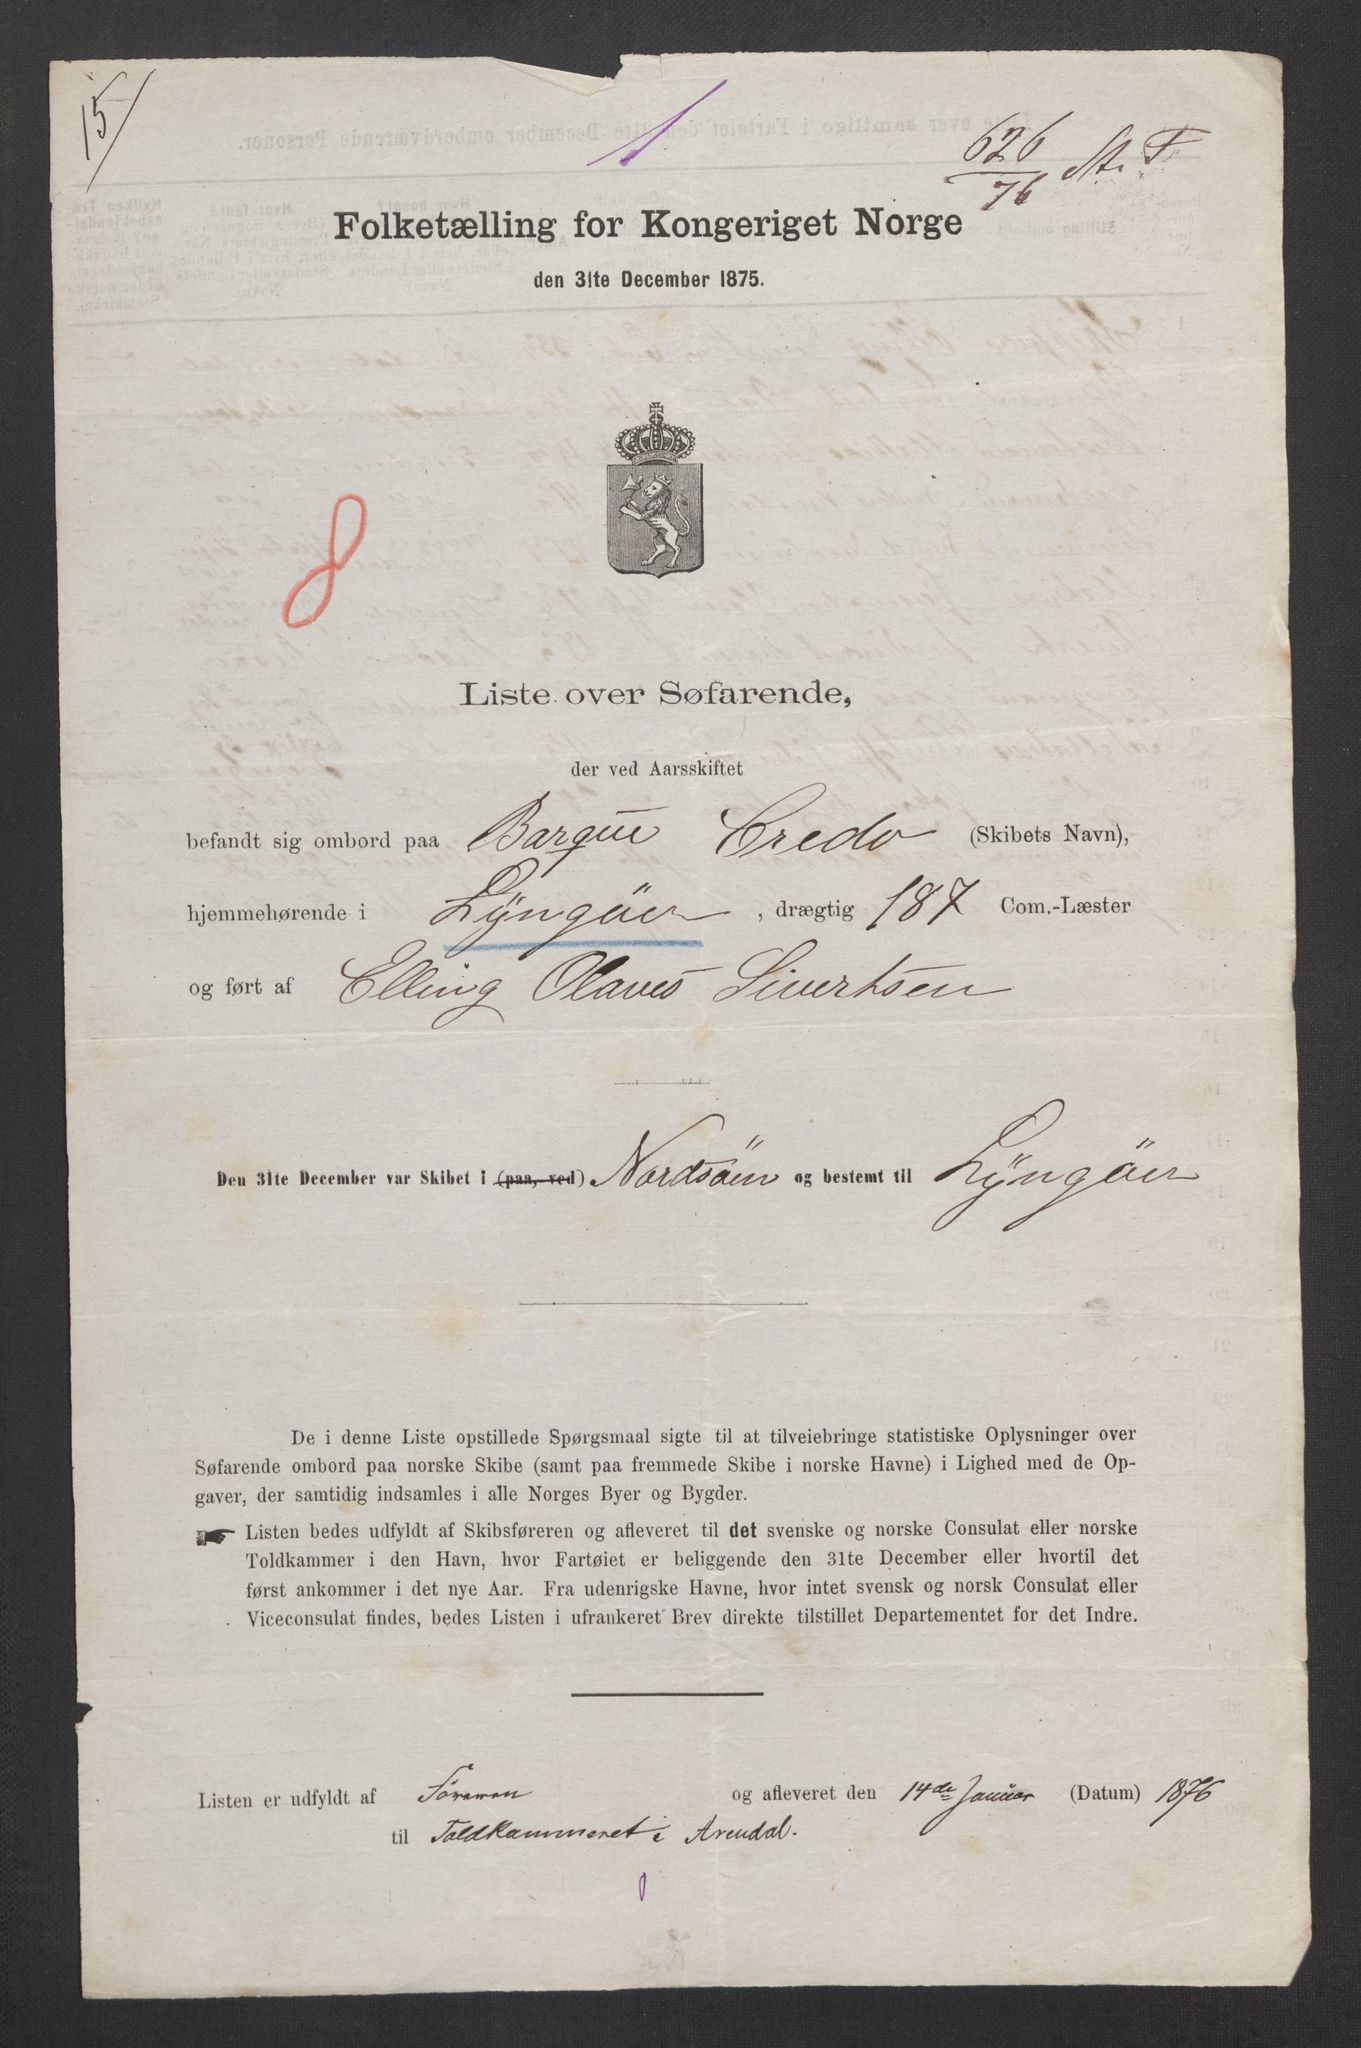 15/
626
76 St. F
Folketælling for Kongeriget Norge
den 31te December 1875.
8
Liste over Søfarende,
der ved Aarsskiftet
befandt sig ombord paa Barque Credo (Skibets Navn),
hjemmehørende i Lÿngöer, drægtig 187 Com.-Læster
og ført af Elling Olaves Sivertsen
Den 31te December var Skibet i (paa, ved) Nordsöen og bestemt til Lÿngöer
De i denne Liste opstillede Spørgsmaal sigte til at tilveiebringe statistiske Oplysninger over
Søfarende ombord paa norske Skibe (samt paa fremmede Skibe i norske Havne) i Lighed med de Op-
gaver, der samtidig indsamles i alle Norges Byer og Bygder.
Listen bedes udfyldt af Skibsføreren og afleveret til det svenske og norske Consulat eller norske
Toldkammer i den Havn, hvor Fartøiet er beliggende den 31te December eller hvortil det
først ankommer i det nye Aar. Fra udenrigske Havne, hvor intet svensk og norsk Consulat eller
Viceconsulat findes, bedes Listen i ufrankeret Brev direkte tilstillet Departementet for det Indre.
Listen er udfyldt af Föreren og afleveret den 14de Januar (Datum) 1876
til Toldkammeret i Arendal.